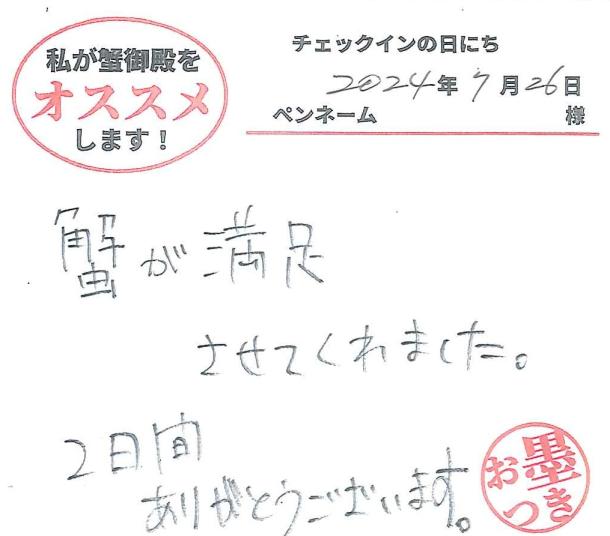 私が蟹御殿を
オススメ
します！
チェックインの日にち
2024年7月26日
ペンネーム 様
蟹が満足
させてくれました。
2日間
ありがとうございます。
お墨
つき